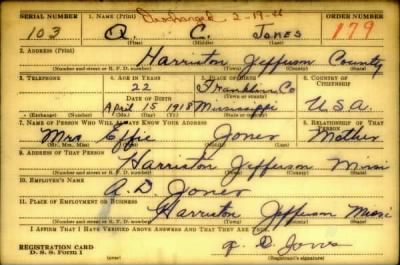 SERIAL NUMBER 1. NAME (Print) Discharged 2-19-46 ORDER NUMBER
103 O. C. JONES 179
(First) (Middle) (Last)
2. ADDRESS (Print)
Harriston Jefferson County
(Number and street or R. F. D. number) (Town) (County) (State)
3. TELEPHONE 4. AGE IN YEARS 5. PLACE OF BIRTH 6. COUNTRY OF CITIZENSHIP
22 Franklin Co
DATE OF BIRTH (Town or county)
April 15 1918 Mississippi U.S.A.
(Exchange) (Number) (Mo.) (Day) (Yr.) (State or country)
7. NAME OF PERSON WHO WILL ALWAYS KNOW YOUR ADDRESS 8. RELATIONSHIP OF THAT PERSON
Mrs Effie Jones Mother
(Mr., Mrs., Miss) (First) (Middle) (Last)
9. ADDRESS OF THAT PERSON
Harriston Jefferson Missi
(Number and street or R. F. D. number) (Town) (County) (State)
10. EMPLOYER'S NAME
A. D. Jones
11. PLACE OF EMPLOYMENT OR BUSINESS
Harriston Jefferson Missi
(Number and street or R. F. D. number) (Town) (County) (State)
I AFFIRM THAT I HAVE VERIFIED ABOVE ANSWERS AND THAT THEY ARE TRUE.
REGISTRATION CARD
D. S. S. Form 1 (Registrant's signature)